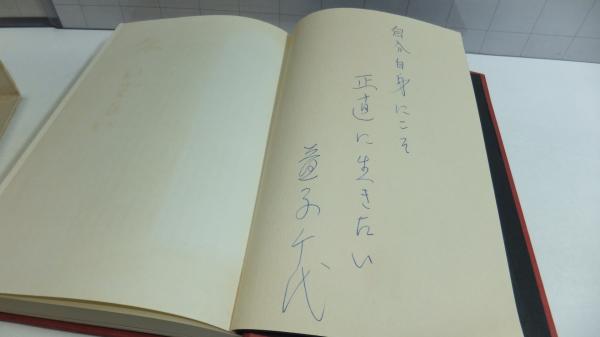 自分自身にこそ
正直に生きたい
子千代